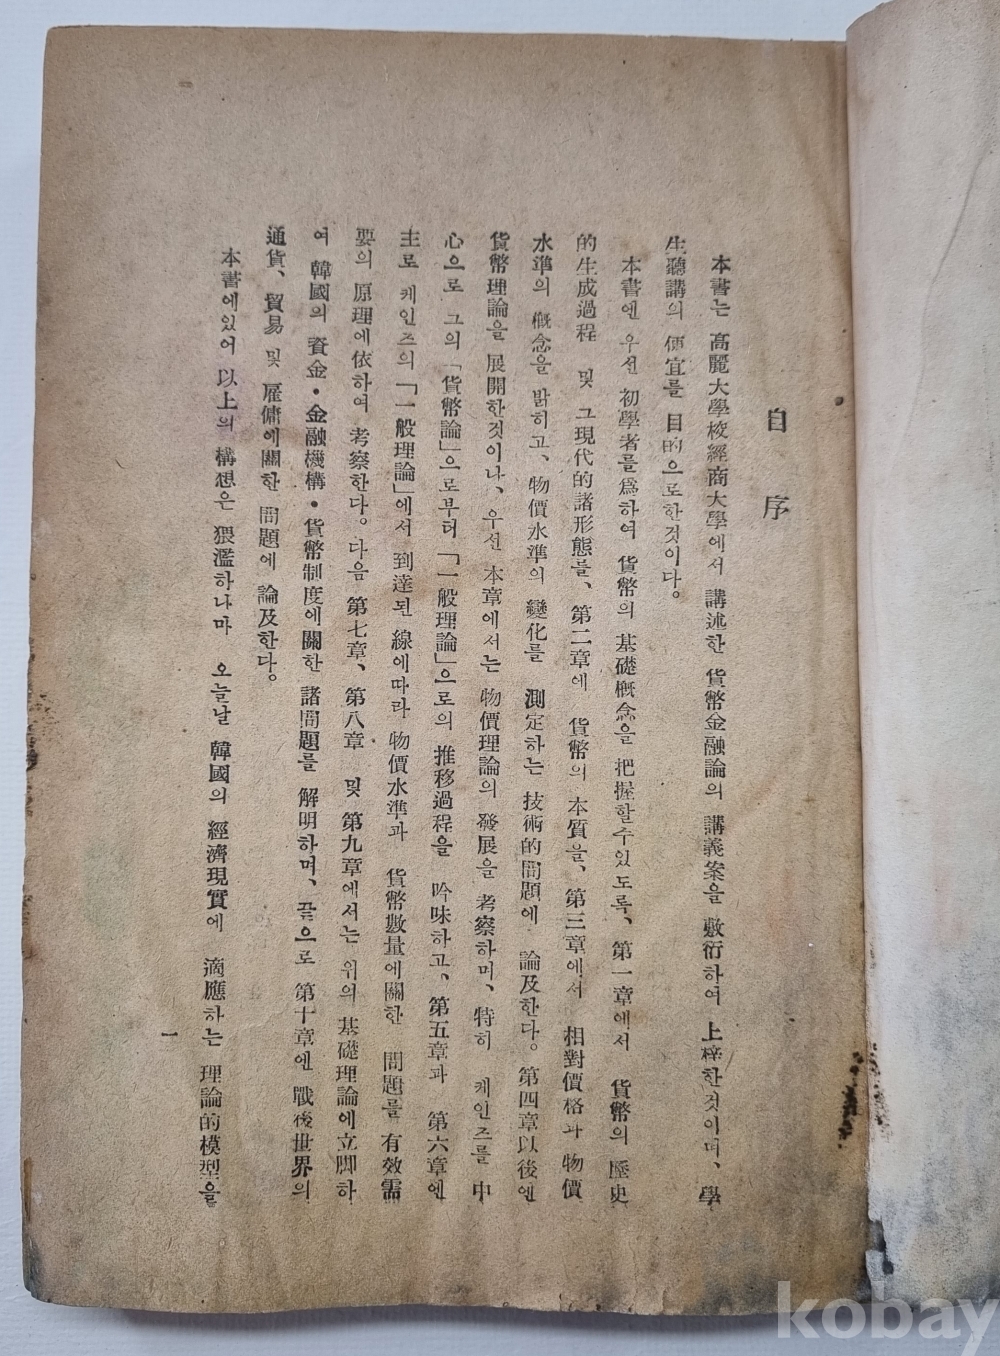 自序
本書는 高麗大學校經商大學에서 講述한 貨幣金融論의 講義案을 敷衍하여 上梓한것이며、學
生聽講의 便宜를 目的으로한것이다。
本書엔 우선 初學者를爲하여 貨幣의 基礎概念을 把握할수있도록、第一章에서 貨幣의 歷史
的生成過程 및 그現代的諸形態를、第二章에 貨幣의本質을、第三章에서 相對價格과 物價
水準의 概念을 밝히고、物價水準의 變化를 測定하는 技術的問題에 論及한다。第四章以後엔
貨幣理論을 展開한것이나、우선 本章에서는 物價理論의 發展을 考察하며、特히 케인즈를 中
心으로 그의「貨幣論」으로부터「一般理論」으로의 推移過程을 吟味하고、第五章과 第六章엔
主로 케인즈의「一般理論」에서 到達된 線에따라 物價水準과 貨幣數量에關한 問題를 有效需
要의 原理에依하여 考察한다。다음 第七章、第八章 및 第九章에서는 위의 基礎理論에立脚하
여 韓國의 資金・金融機構・貨幣制度에關한 諸問題를 解明하며、끝으로 第十章엔 戰後世界의
通貨、貿易 및 雇傭에關한 問題에 論及한다。
本書에있어 以上의 構想은 猥濫하나마 오늘날 韓國의 經濟現實에 適應하는 理論的模型을
一
kobay